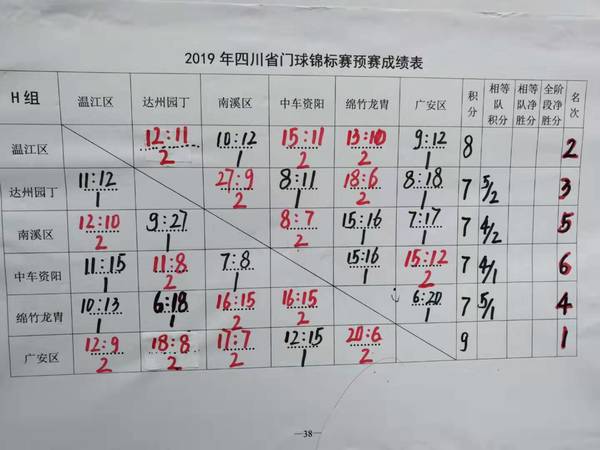 2019 年四川省门球锦标赛预赛成绩表
H 组 温江区 达州园丁 南溪区 中车资阳 绵竹龙胄 广安区 积分 相等队积分 相等队净胜分 全阶段净胜分 名次
温江区 12:11 10:12 15:11 13:10 9:12 8 2
2 1 2 2 1
达州园丁 11:12 27:9 8:11 18:6 8:18 7 5/2 3
1 2 1 2 1
南溪区 12:10 9:27 8:7 15:16 7:17 7 4/2 5
2 1 2 1 1
中车资阳 11:15 11:8 7:8 15:16 15:12 7 4/1 6
1 2 1 1 2
绵竹龙胄 10:13 6:18 16:15 16:15 6:20 7 5/1 4
1 1 2 2 1
广安区 12:9 18:8 17:7 12:15 20:6 9 1
2 2 2 1 2
—38—